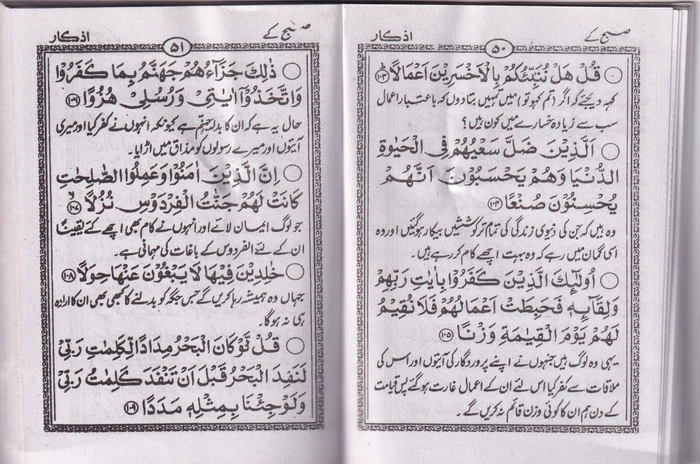 صبح کے ۵۰ اذکار
○ قُلْ هَلْ نُنَبِّئُكُمْ بِالْاَخْسَرِيْنَ اَعْمَالًا ۱۰۳
کہہ دیجئے کہ اگر (تم کہو تو) میں تمہیں بتا دوں کہ باعتبار اعمال
سب سے زیادہ خسارے میں کون ہیں؟
○ اَلَّذِيْنَ ضَلَّ سَعْيُهُمْ فِي الْحَيٰوةِ
الدُّنْيَا وَهُمْ يَحْسَبُوْنَ اَنَّهُمْ
يُحْسِنُوْنَ صُنْعًا ۱۰۴
وہ ہیں کہ جن کی دنیوی زندگی کی تمام تر کوششیں بیکار ہوگئیں اور وہ
اسی گمان میں رہے کہ وہ بہت اچھے کام کر رہے ہیں۔
○ اُولٰٓئِكَ الَّذِيْنَ كَفَرُوْا بِاٰيٰتِ رَبِّهِمْ
وَلِقَآئِهٖ فَحَبِطَتْ اَعْمَالُهُمْ فَلَا نُقِيْمُ
لَهُمْ يَوْمَ الْقِيٰمَةِ وَزْنًا ۱۰۵
یہی وہ لوگ ہیں جنہوں نے اپنے پروردگار کی آیتوں اور اس کی
ملاقات سے کفر کیا اس لئے ان کے اعمال غارت ہوگئے پس قیامت
کے دن ہم ان کا کوئی وزن قائم نہ کریں گے۔
صبح کے ۵۱ اذکار
○ ذٰلِكَ جَزَآؤُهُمْ جَهَنَّمُ بِمَا كَفَرُوْا
وَاتَّخَذُوْٓا اٰيٰتِيْ وَرُسُلِيْ هُزُوًا ۱۰۶
حال یہ ہے کہ ان کا بدلہ جہنم ہے کیونکہ انہوں نے کفر کیا اور میری
آیتوں اور میرے رسولوں کو مذاق میں اڑایا۔
○ اِنَّ الَّذِيْنَ اٰمَنُوْا وَعَمِلُوا الصّٰلِحٰتِ
كَانَتْ لَهُمْ جَنّٰتُ الْفِرْدَوْسِ نُزُلًا ۱۰۷
جو لوگ ایمان لائے اور انہوں نے کام بھی اچھے کیے یقیناً
ان کے لئے الفردوس کے باغات کی مہمانی ہے۔
○ خٰلِدِيْنَ فِيْهَا لَا يَبْغُوْنَ عَنْهَا حِوَلًا ۱۰۸
جہاں وہ ہمیشہ رہا کریں گے جس جگہ کو بدلنے کا کبھی بھی ان کا ارادہ
ہی نہ ہوگا۔
○ قُلْ لَّوْ كَانَ الْبَحْرُ مِدَادًا لِّكَلِمٰتِ رَبِّيْ
لَنَفِدَ الْبَحْرُ قَبْلَ اَنْ تَنْفَدَ كَلِمٰتُ رَبِّيْ
وَلَوْ جِئْنَا بِمِثْلِهٖ مَدَدًا ۱۰۹